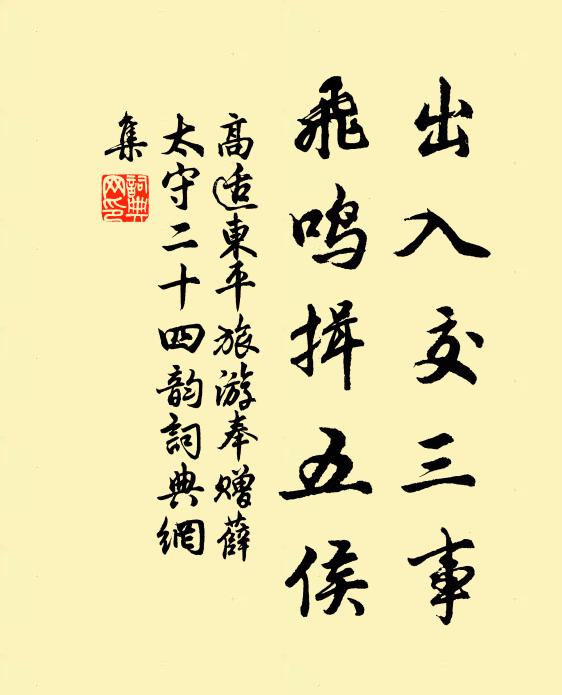 出入交三事
飛鸣揖五侯
高适東平旅游奉贈薛
太守二十四韵詞典網
集
詞典
网印